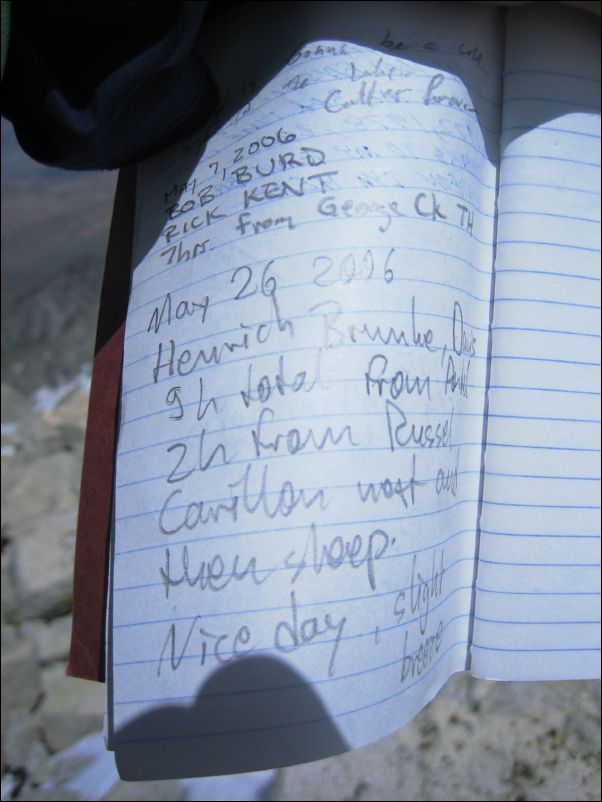 be a
the Lake
Cuttier forever
May 7, 2006
BOB BURD
RICK KENT
7hr. from George Ck TH
May 26 2006
Henrich Brunke, Davis
9h total from
2h from Russel
Carillon next and
then sleep.
Nice day, slight
breeze